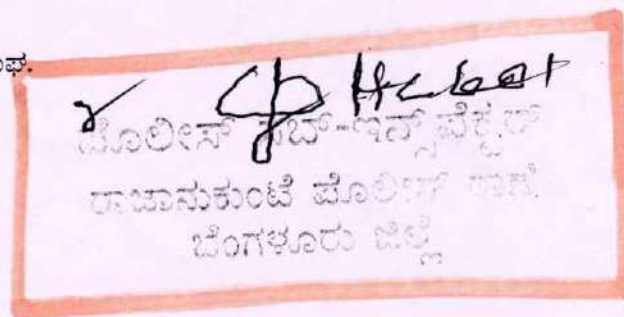 ಪೊಲೀಸ್ ಸಬ್-ಇನ್ಸ್‌ಪೆಕ್ಟರ್
ರಾಜಾನುಕುಂಟೆ ಪೊಲೀಸ್ ಠಾಣೆ
ಬೆಂಗಳೂರು ಜಿಲ್ಲೆ